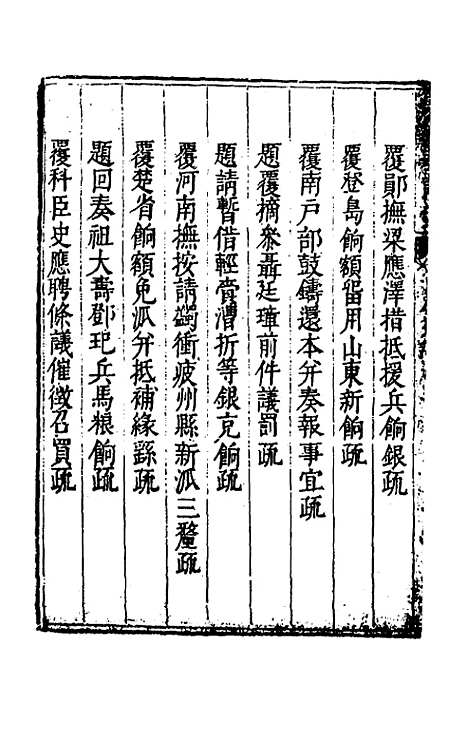 覆鄖撫梁應澤措抵援兵餉銀疏
覆登島餉額留用山東新餉疏
覆南戶部鼓鑄還本并奏報事宜疏
題覆摘叅聶廷璋前件議罰疏
題請暫借輕賫漕折等銀克餉疏
覆河南撫按請蠲衝疲州縣新派三釐疏
覆楚省餉額免派并抵補緣繇疏
題回奏祖大壽鄧玘兵馬粮餉疏
覆科臣史應聘條議催徵召買疏